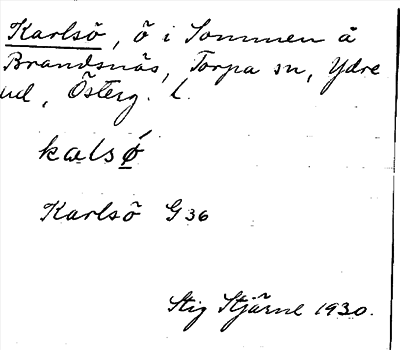 Karlsö, ö i Sommen å
Brandsnäs, Torpa sn, Ydre
hd, Österg. L.
kalsö́
Karlsö G 36
Stig Stjärne 1930.